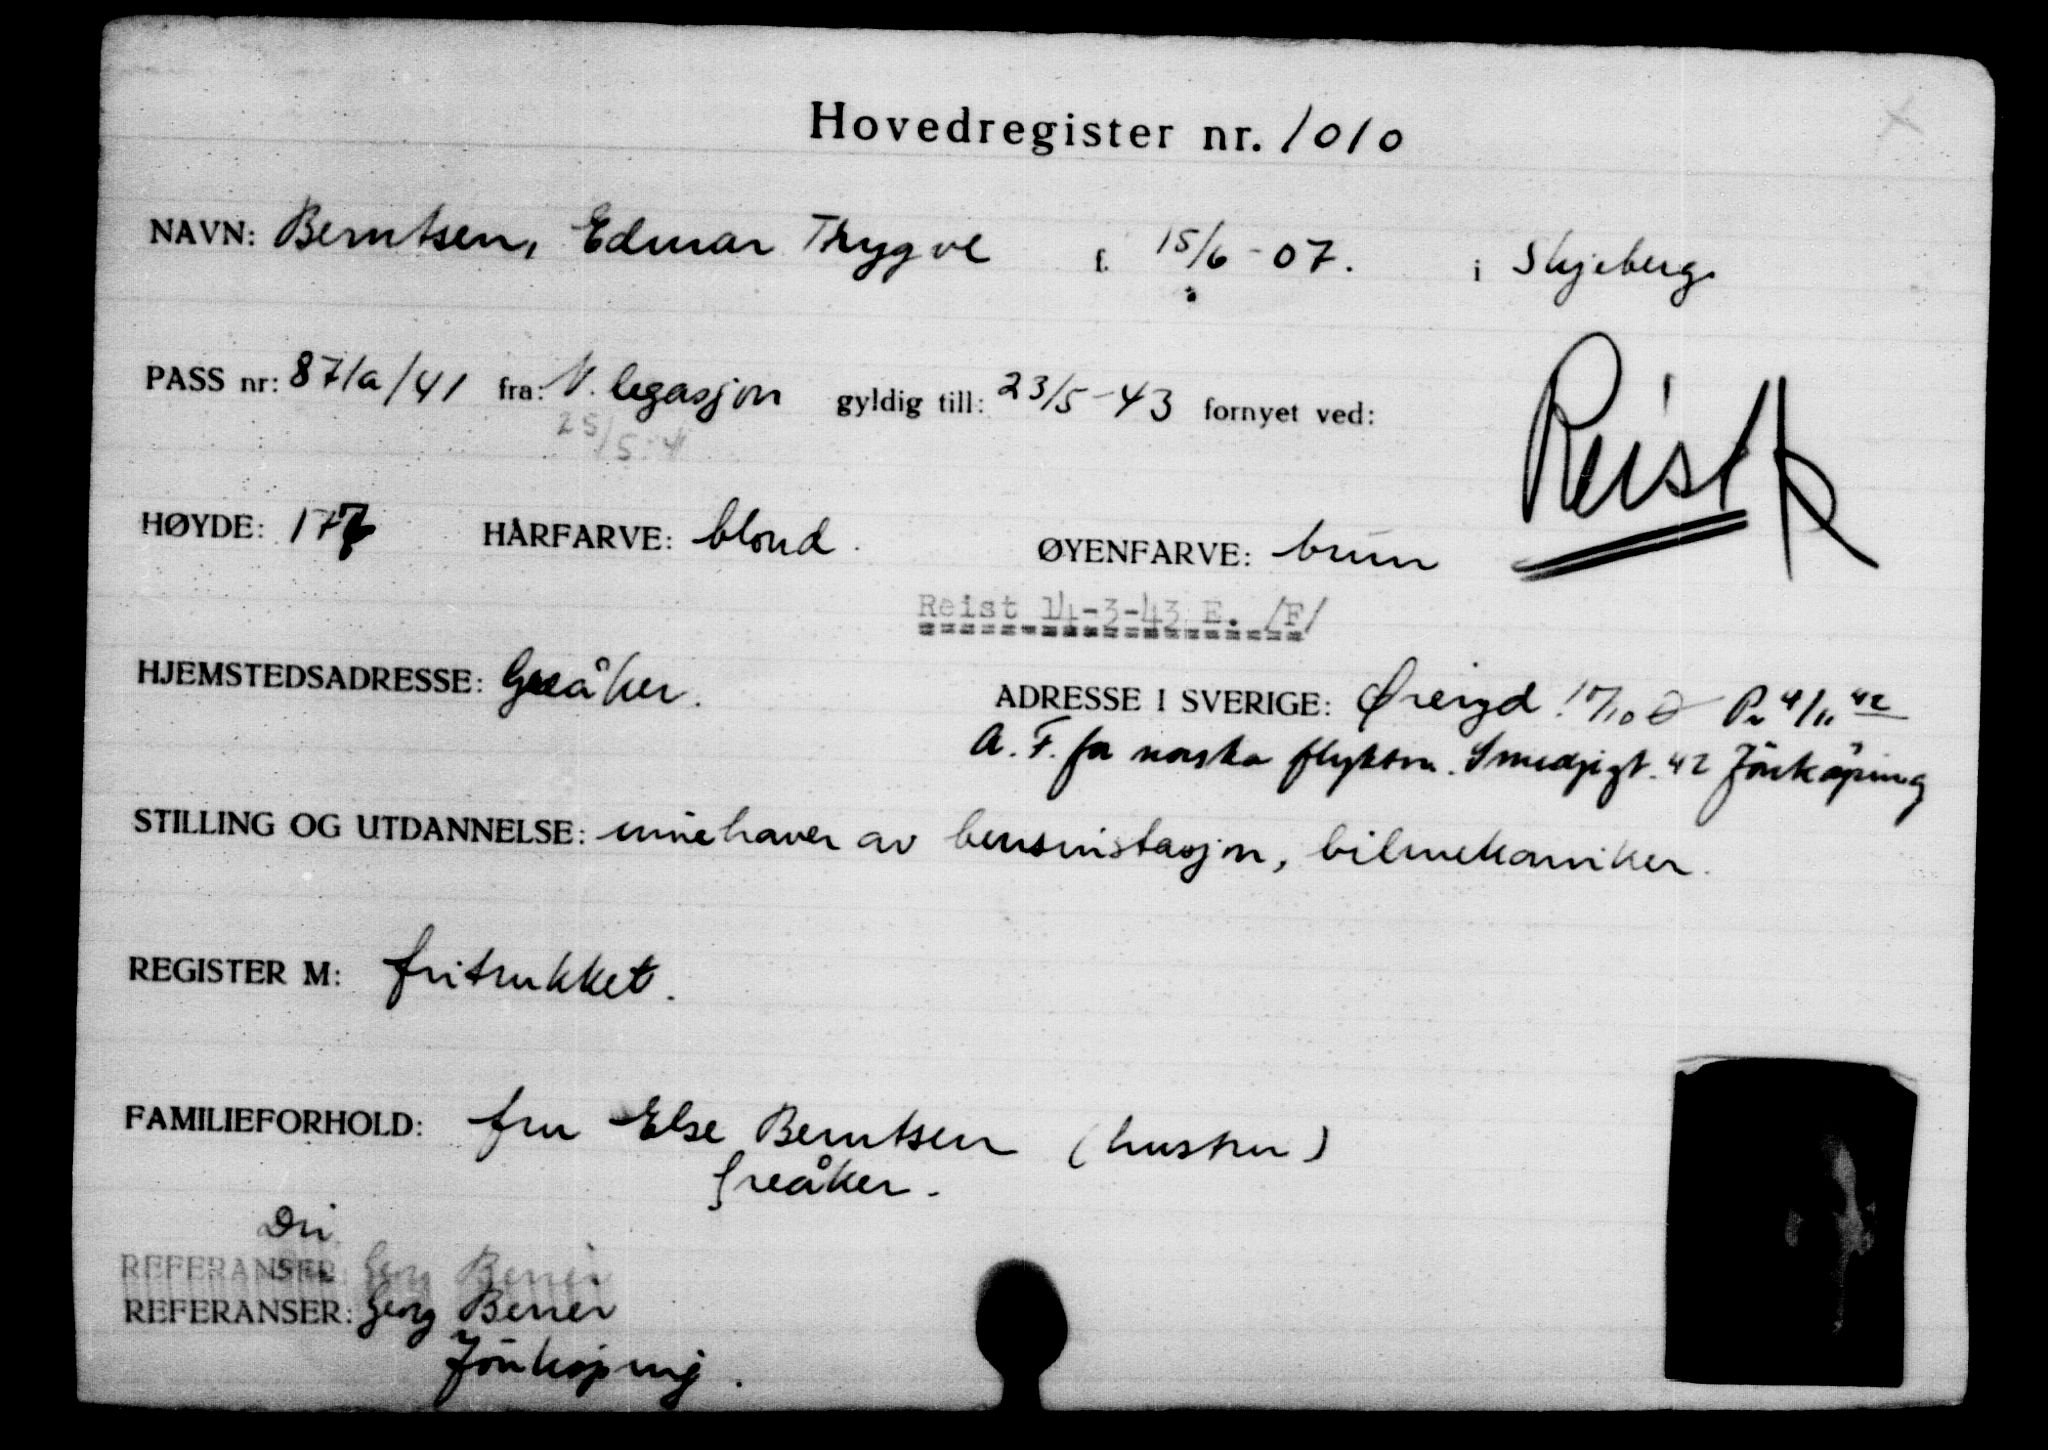 Hovedregister nr. 1010
NAVN: Berntsen, Edmar Thygve f. 15/6-07. i Skjeberg.
PASS nr: 871a/41 fra: N. legasjon gyldig till: 23/5-43 fornyet ved:
25/5-41
Reist
HØYDE: HÅRFARVE: blond. ØYENFARVE: brun
Reist 14-3-43 E. /F/
HJEMSTEDSADRESSE: Greåker. ADRESSE I SVERIGE: Øreryd 4/11 42
A. F. for norska flyktn. Smedjegt. 42 Jönköping
STILLING OG UTDANNELSE: innehaver av bensinstasjon, bilmekaniker.
REGISTER M: fritrukket.
FAMILIEFORHOLD: fru Else Berntsen (hustru)
Greåker.
Dir.
REFERANSER: Georg Berner
REFERANSER: Georg Berner
Jönköping.